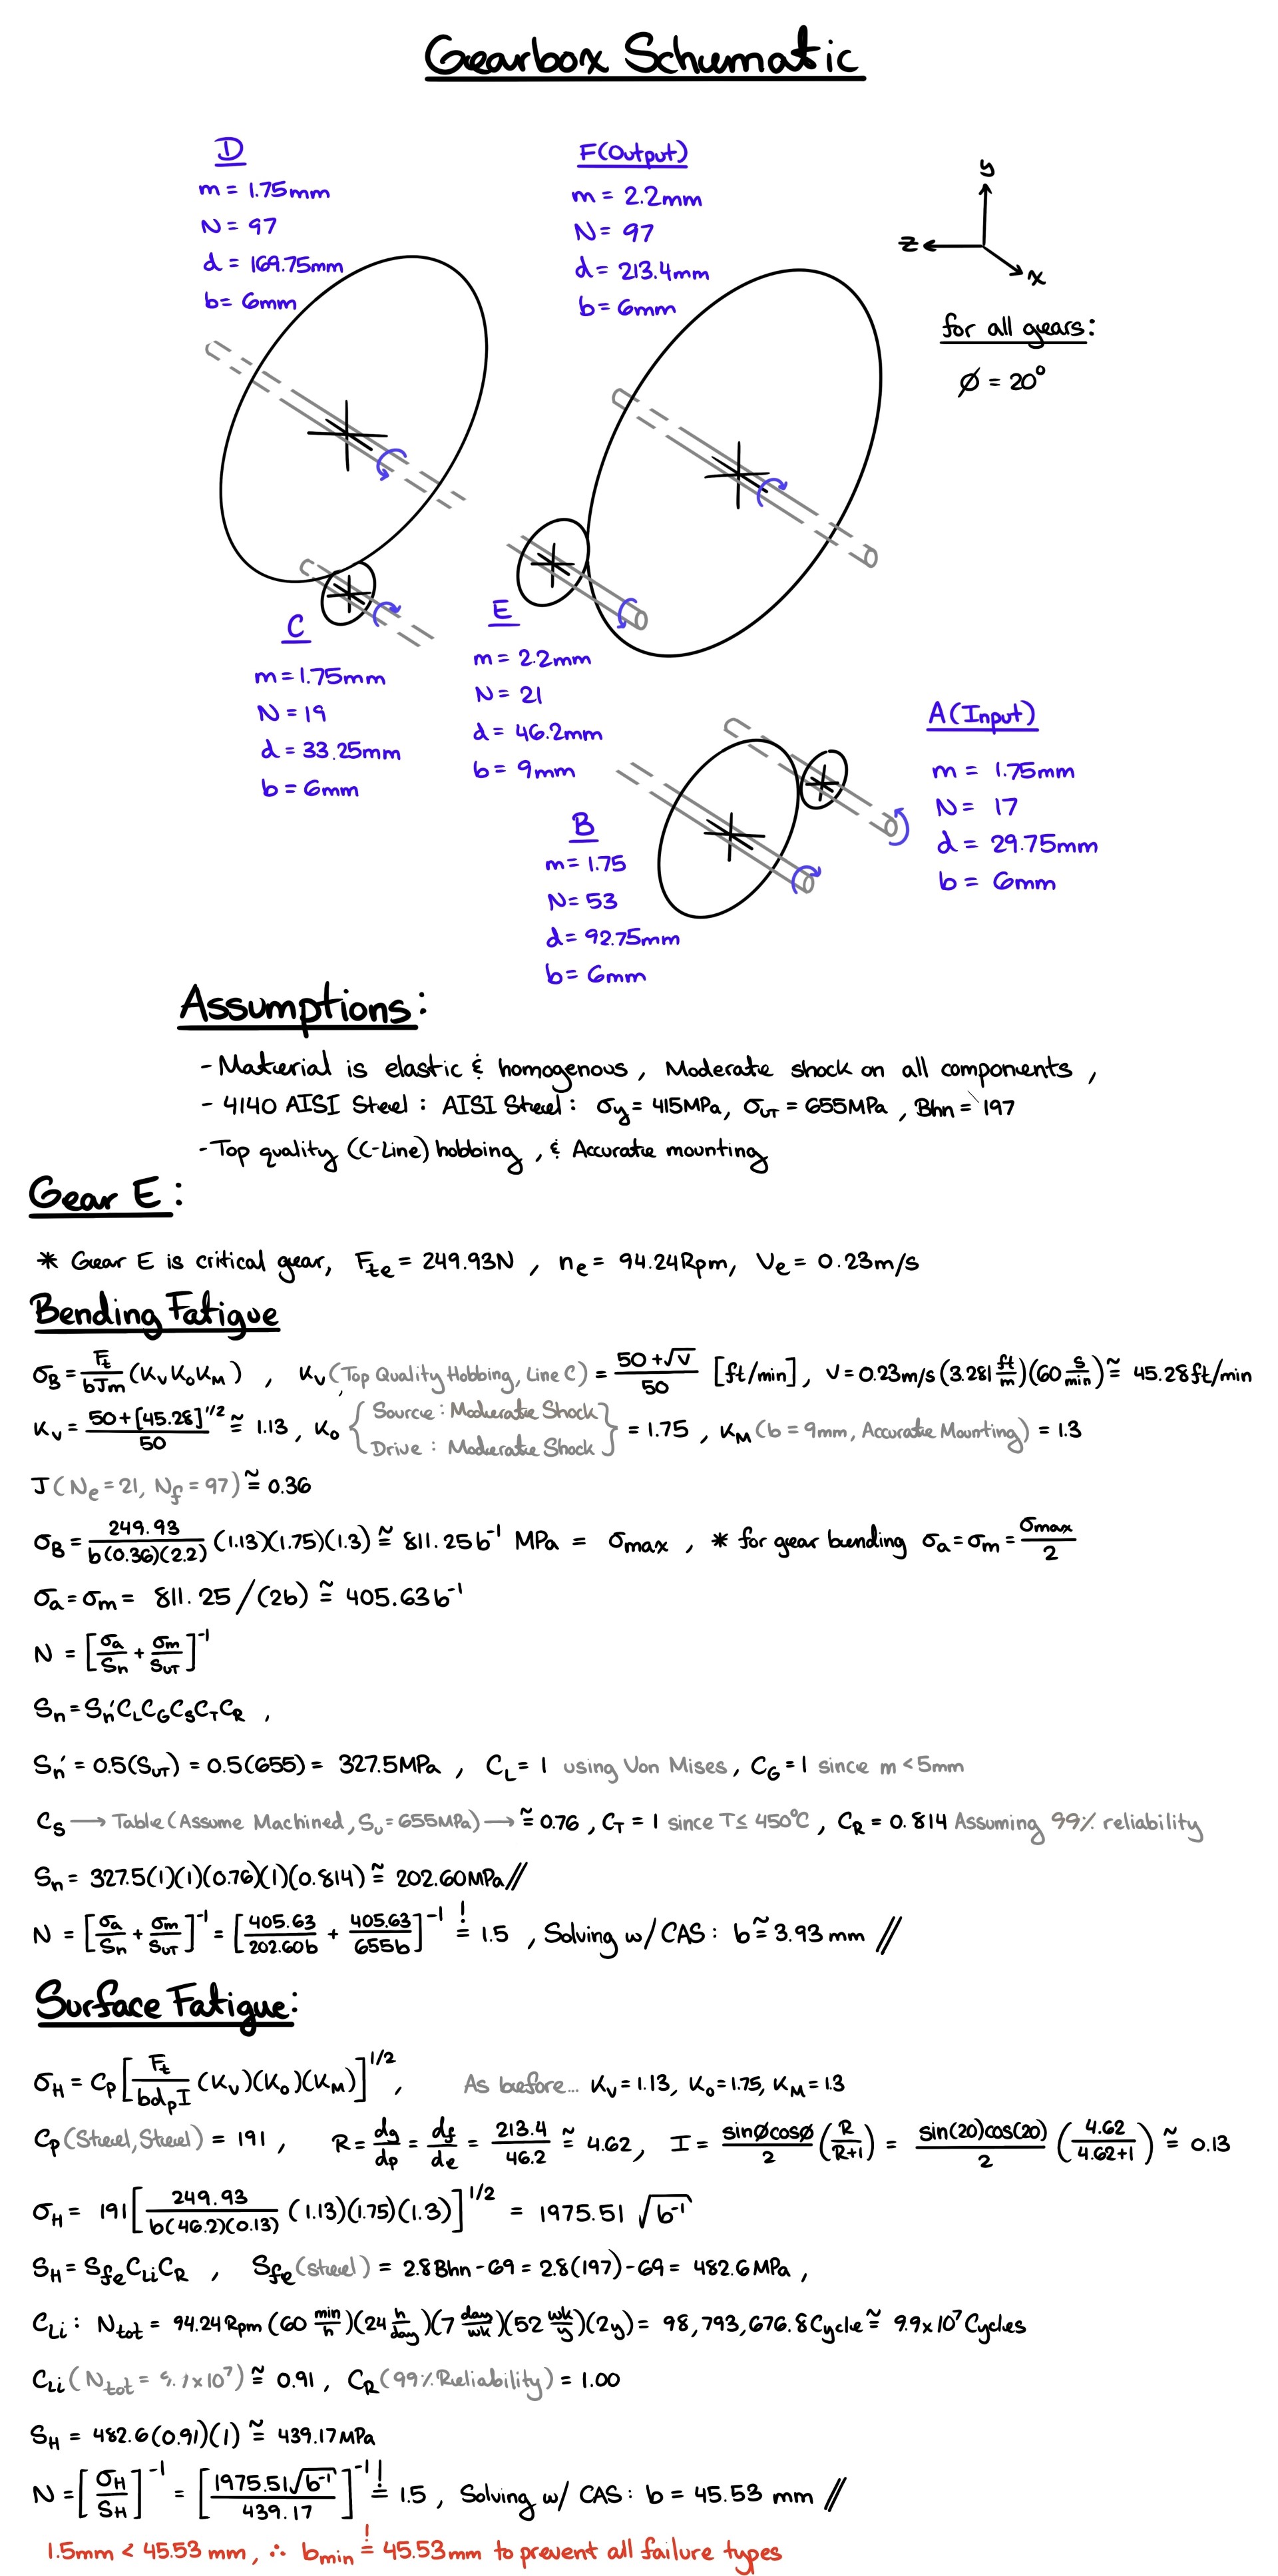 Gearbox Schematic
D
m = 1.75mm
N = 97
d = 169.75mm
b = 6mm
F(Output)
m = 2.2mm
N = 97
d = 213.4mm
b = 6mm
y
z
x
for all gears:
ϕ = 20°
C
m = 1.75mm
N = 19
d = 33.25mm
b = 6mm
E
m = 2.2mm
N = 21
d = 46.2mm
b = 9mm
A(Input)
m = 1.75mm
N = 17
d = 29.75mm
b = 6mm
B
m = 1.75
N = 53
d = 92.75mm
b = 6mm
Assumptions:
- Material is elastic & homogenous, Moderate shock on all components,
- 4140 AISI Steel: AISI Steel: σy = 415MPa, σUT = 655MPa, Bhn = 197
- Top quality (C-Line) hobbing, & Accurate mounting
Gear E:
* Gear E is critical gear, Fte = 249.93N, ne = 94.24Rpm, Ve = 0.23m/s
Bending Fatigue
σB = Ft/(bJm) (KvKoKM), Kv (Top Quality Hobbing, Line C) = (50 + √V)/50 [ft/min], V = 0.23m/s (3.281 ft/m)(60 s/min) ≅ 45.28ft/min
Kv = (50 + [45.28]^1/2)/50 ≅ 1.13, Ko {Source: Moderate Shock Drive: Moderate Shock} = 1.75, KM (b = 9mm, Accurate Mounting) = 1.3
J (Ne = 21, Nf = 97) ≅ 0.36
σB = 249.93/(b(0.36)(2.2)) (1.13)(1.75)(1.3) ≅ 811.25b^-1 MPa = σmax, * for gear bending σa = σm = σmax/2
σa = σm = 811.25/(2b) ≅ 405.63b^-1
N = [σa/Sn + σm/SUT]^-1
Sn = Sn'CLCGCSCTCR,
Sn' = 0.5(SUT) = 0.5(655) = 327.5MPa, CL = 1 using Von Mises, CG = 1 since m < 5mm
CS → Table (Assume Machined, Su = 655MPa) → ≅ 0.76, CT = 1 since T ≤ 450°C, CR = 0.814 Assuming 99% reliability
Sn = 327.5(1)(1)(0.76)(1)(0.814) ≅ 202.60MPa //
N = [σa/Sn + σm/SUT]^-1 = [405.63/202.60b + 405.63/655b]^-1 =! 1.5, Solving w/ CAS: b ≅ 3.93 mm //
Surface Fatigue:
σH = Cp [Ft/(bdpI) (Kv)(Ko)(KM)]^1/2, As before... Kv = 1.13, Ko = 1.75, KM = 1.3
Cp (Steel, Steel) = 191, R = dg/dp = df/de = 213.4/46.2 ≅ 4.62, I = sinϕcosϕ/2 (R/(R+1)) = sin(20)cos(20)/2 (4.62/(4.62+1)) ≅ 0.13
σH = 191 [249.93/(b(46.2)(0.13)) (1.13)(1.75)(1.3)]^1/2 = 1975.51 √b^-1
SH = SfeCLiCR, Sfe (steel) = 2.8Bhn - 69 = 2.8(197) - 69 = 482.6MPa,
CLi: Ntot = 94.24Rpm (60 min/h)(24 h/day)(7 day/wk)(52 wk/y)(2y) = 98,793,676.8 Cycle ≅ 9.9x10^7 Cycles
CLi (Ntot = 9.9x10^7) ≅ 0.91, CR (99% Reliability) = 1.00
SH = 482.6(0.91)(1) ≅ 439.17MPa
N = [σH/SH]^-1 = [1975.51√b^-1/439.17]^-1 =! 1.5, Solving w/ CAS: b = 45.53 mm //
1.5mm < 45.53 mm, ∴ bmin =! 45.53mm to prevent all failure types